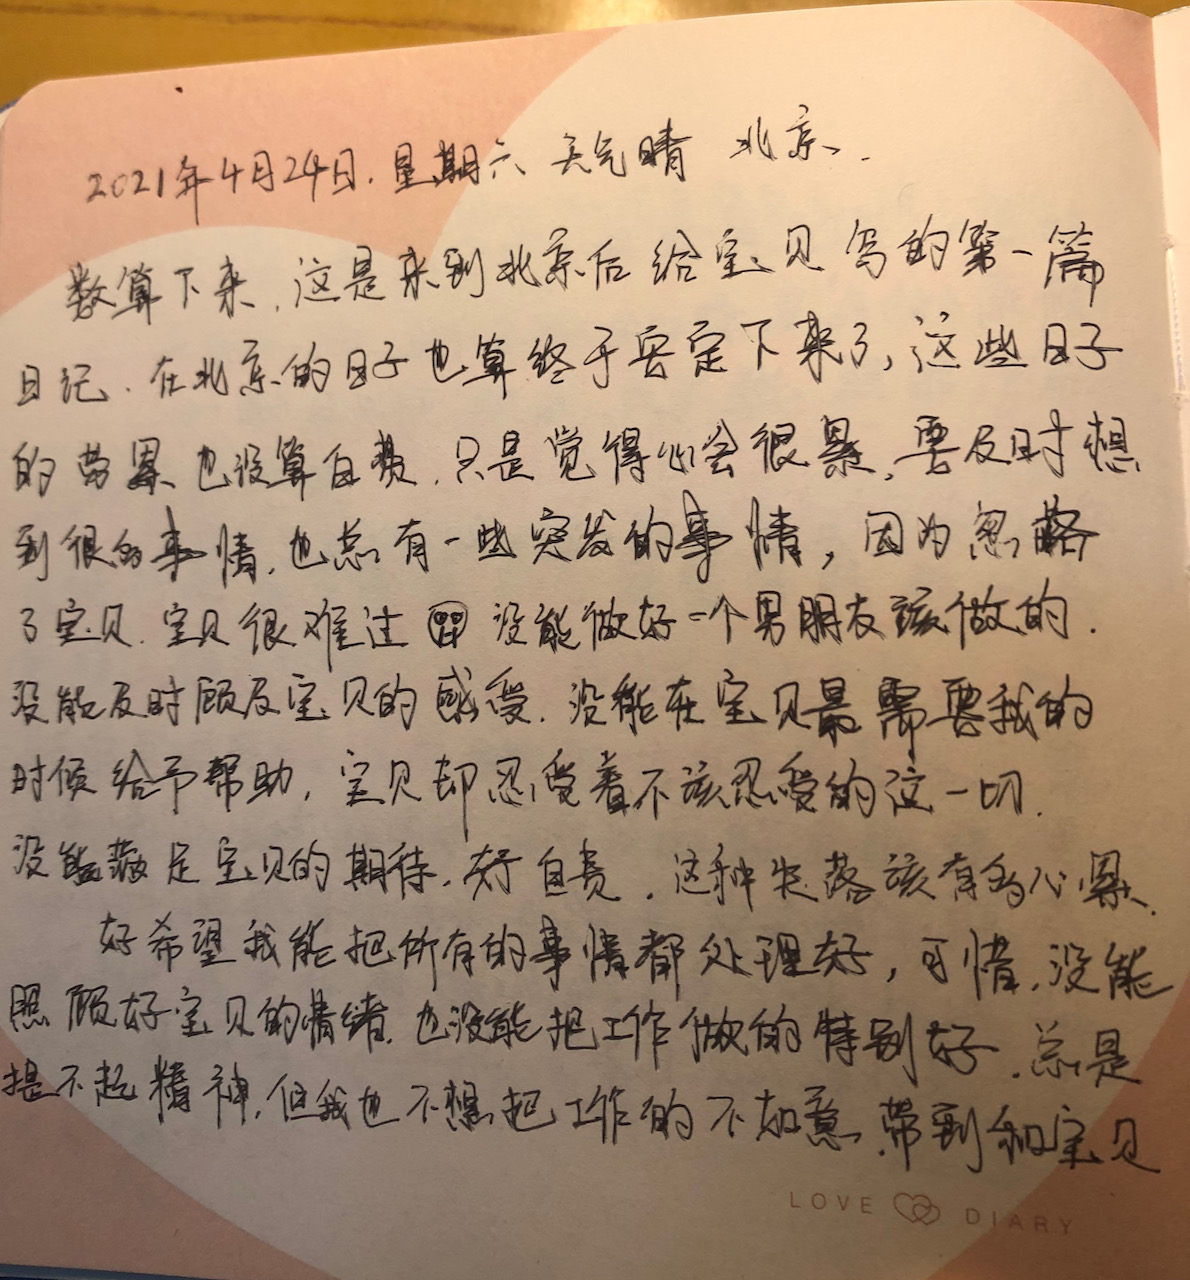 2021年4月24日.星期六 天气晴 北京.
数算下来,这是来到北京后给宝贝写的第一篇
日记.在北京的日子也算终于安定下来了,这些日子
的劳累也没算白费.只是觉得心会很累,要及时想
到很的事情.也总有一些突发的事情,因为忽略
了宝贝.宝贝很难过 没能做好一个男朋友该做的.
没能及时顾及宝贝的感受.没能在宝贝最需要我的
时候给予帮助,宝贝却忍受着不该忍受的这一切.
没能满足宝贝的期待.好自责.这种失落该有的心累.
好希望我能把所有的事情都处理好,可惜.没能
照顾好宝贝的情绪.也没能把工作做的特别好.总是
提不起精神.但我也不想把工作的不如意.带到和宝贝
LOVE DIARY